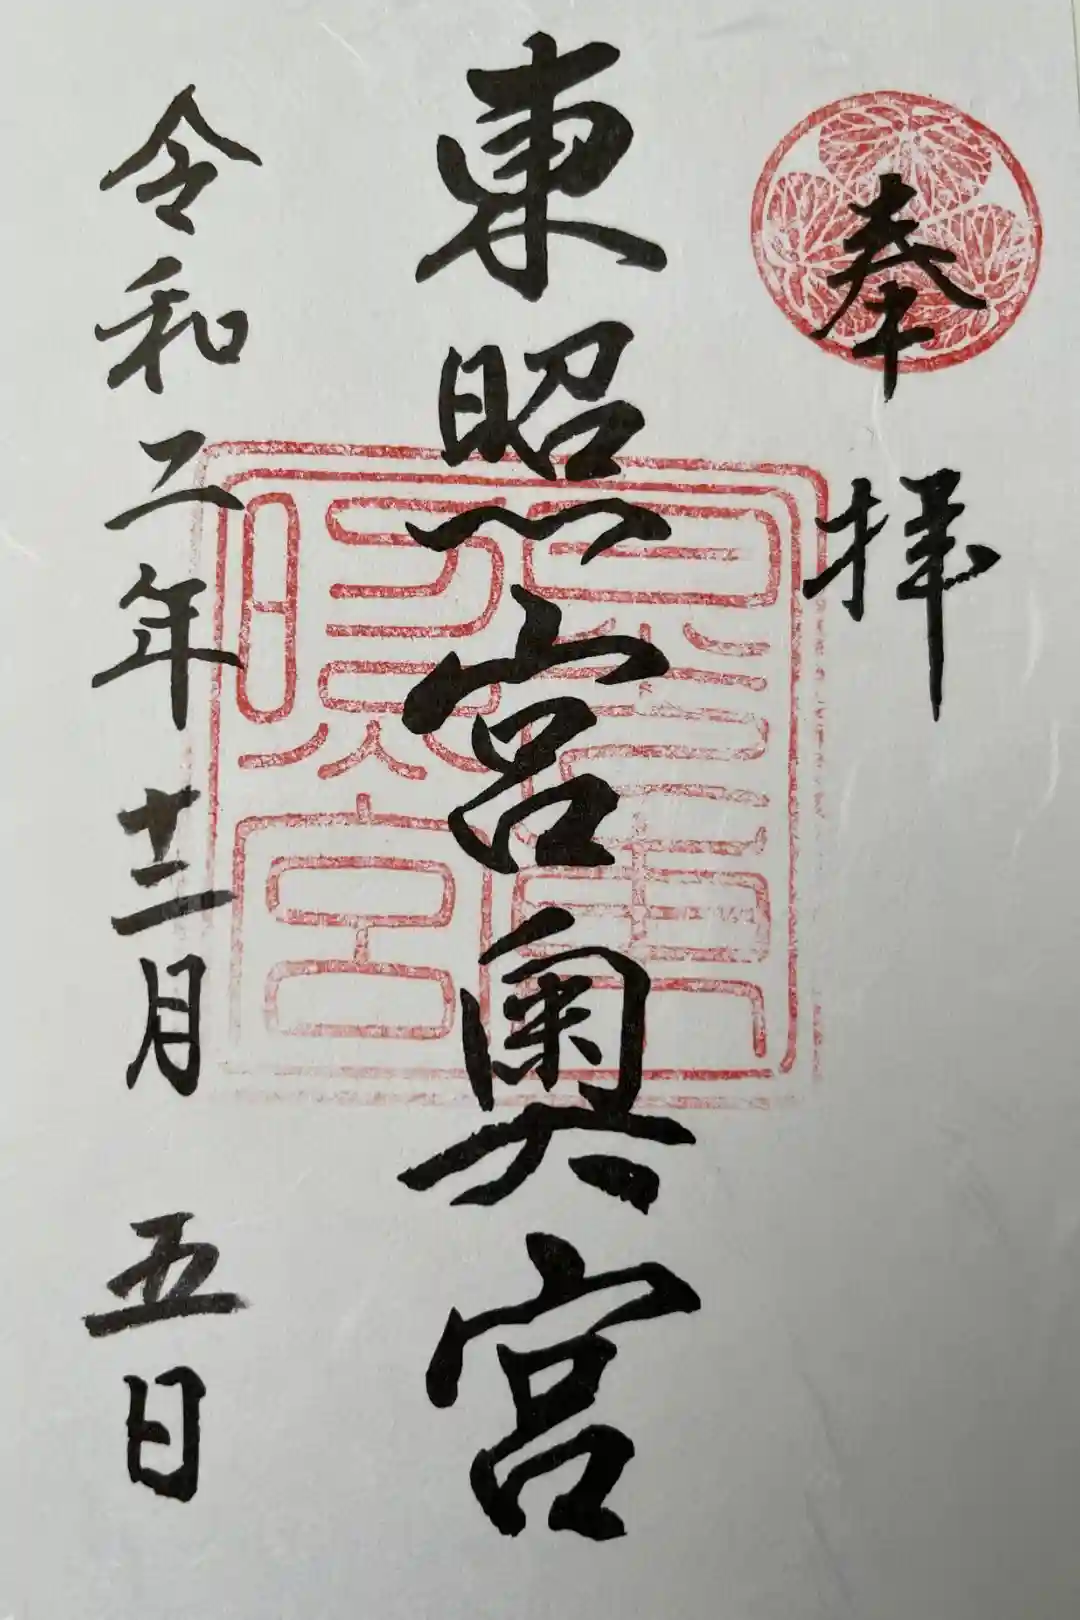 奉拝
東照宮奥宮
令和二年十二月五日